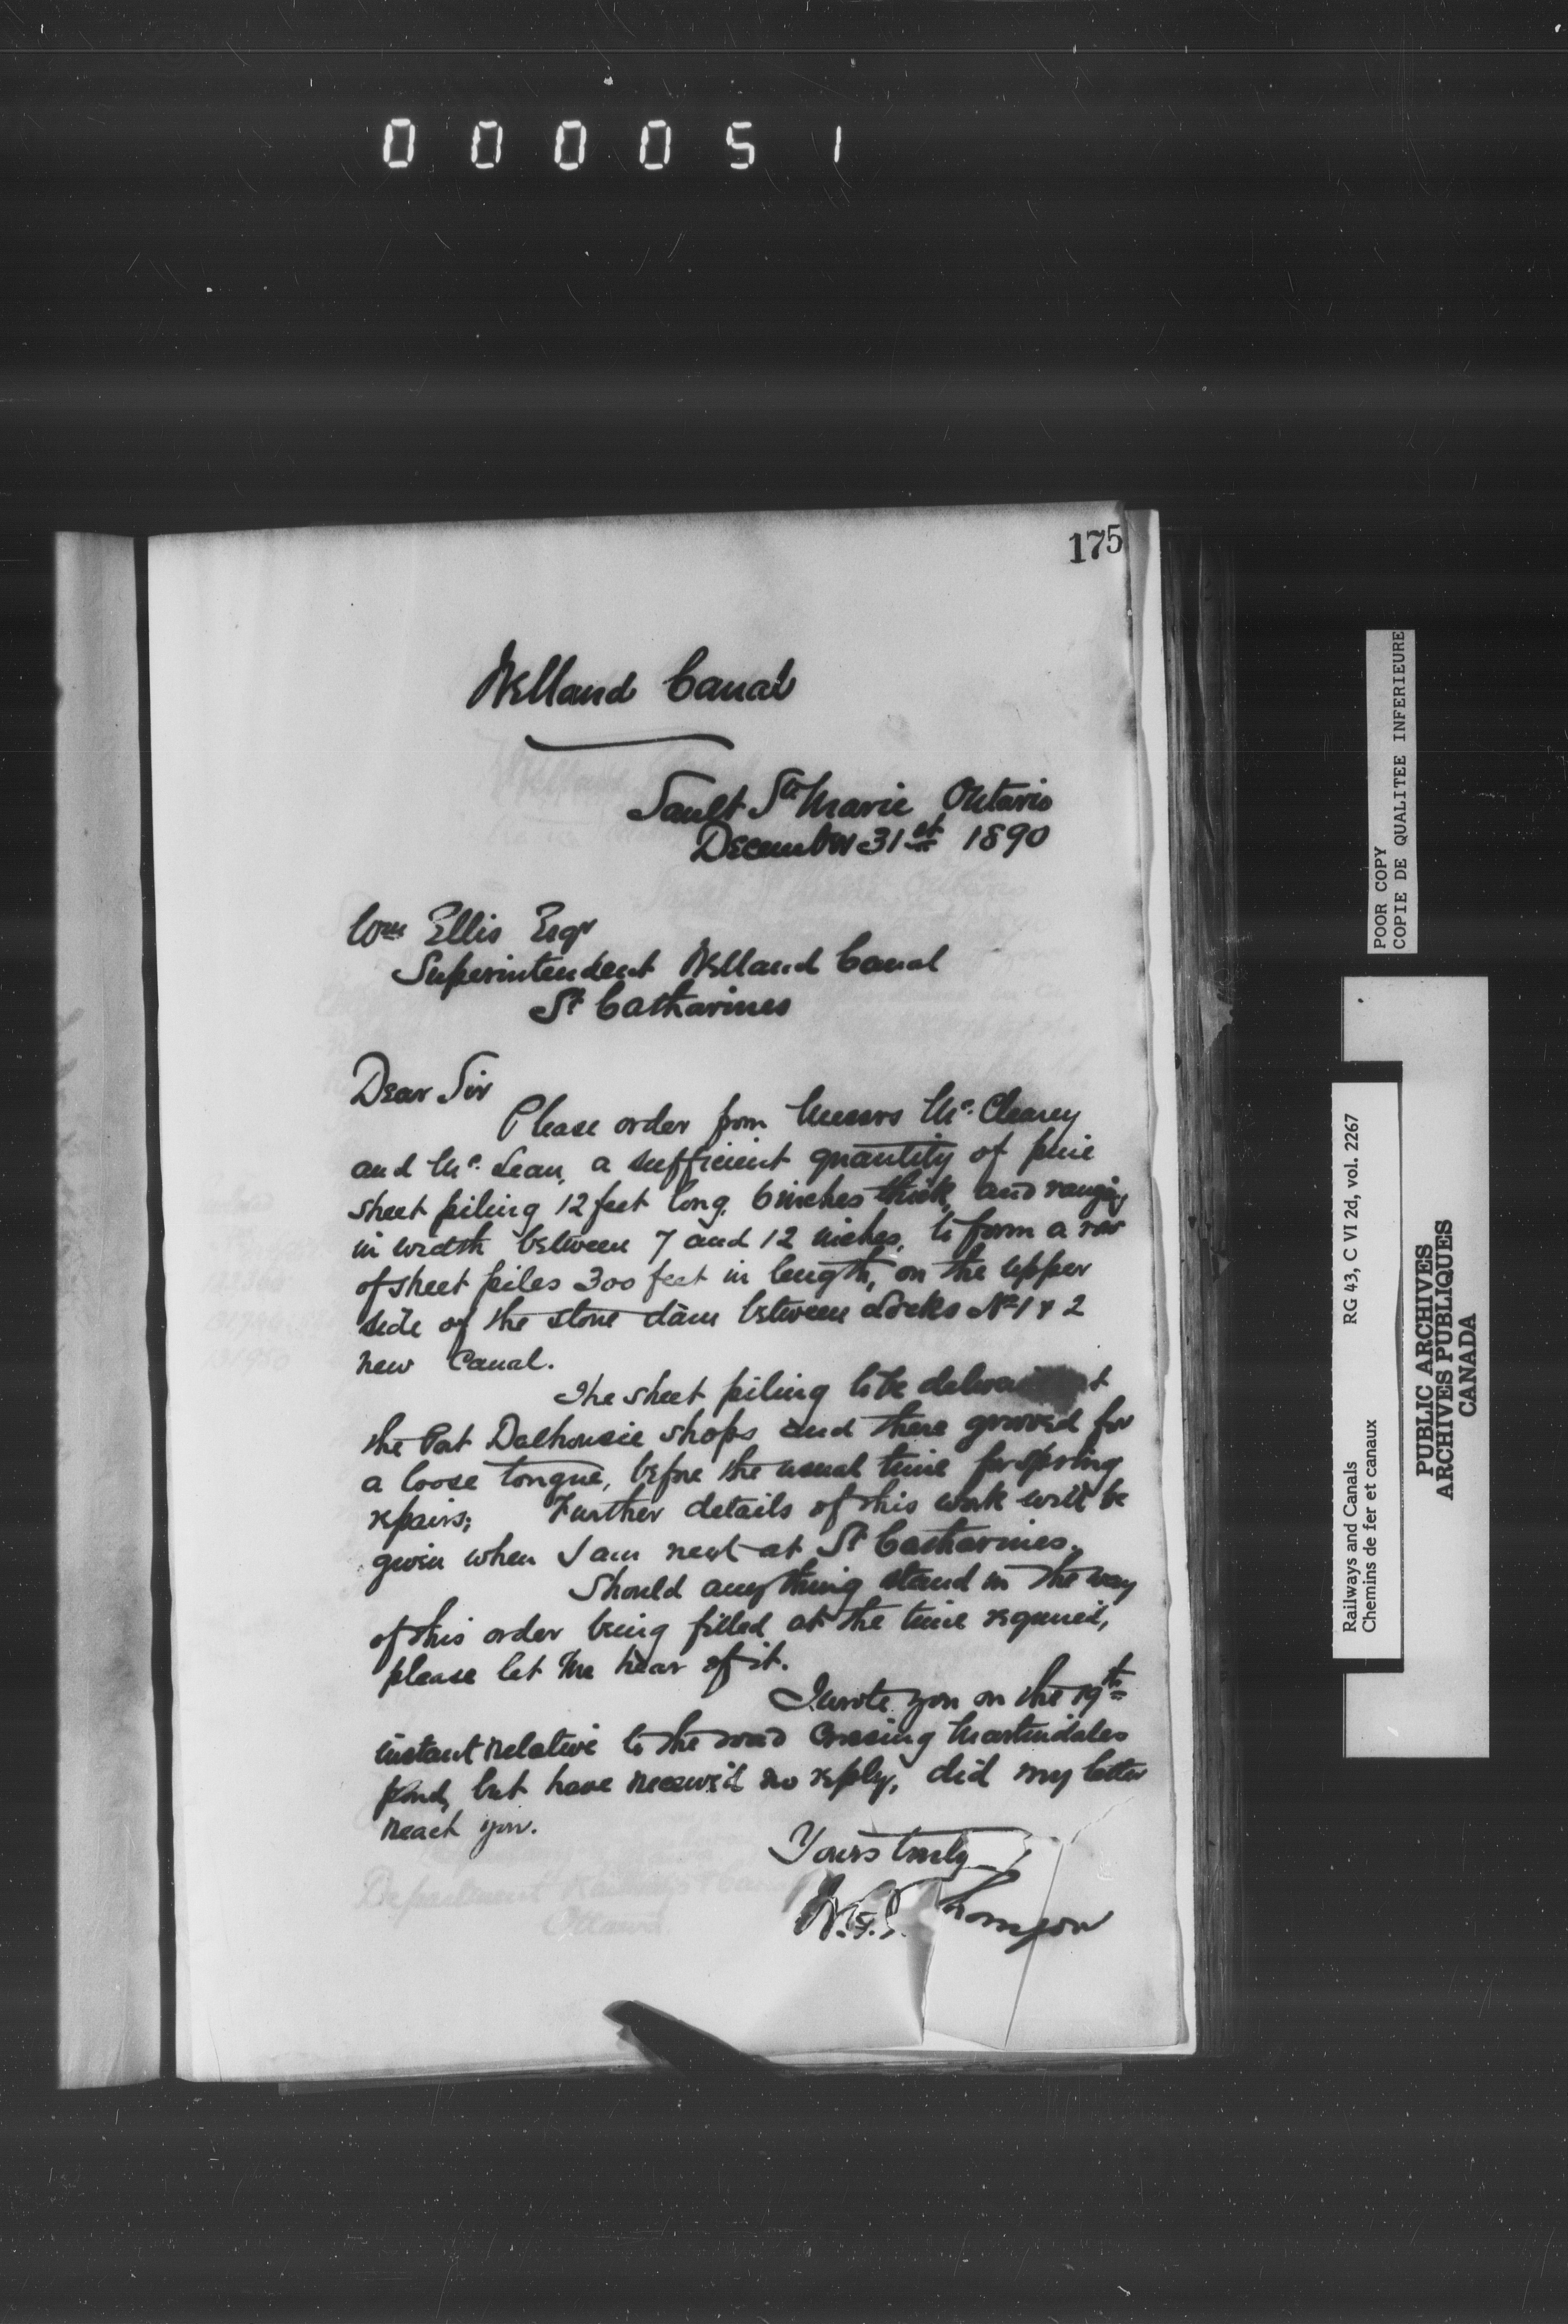 000051
175
Welland Canal
Sault Ste Marie Ontario
December 31st 1890
Wm Ellis Esqr
Superintendent Welland Canal
St Catharines
Dear Sir
Please order from Messrs Mc.Cleary
and Mc.Lean, a sufficient quantity of pine
sheet piling 12 feet long, 6 inches thick, and ranging
in width between 7 and 12 inches, to form a row
of sheet piles 300 feet in length, on the upper
side of the stone dam between Locks No 1 & 2
new Canal.
The sheet piling to be
the Port Dalhousie shops and there grooved for
a loose tongue, before the usual time for spring
repairs; Further details of this work will be
given when I am next at St Catharines.
Should anything stand in the way
of this order being filled at the time required,
please let me hear of it.
I wrote you on the 19th
instant relative to the road crossing Martindales
pond, but have received no reply, did my letter
reach you.
Yours truly
W.G. Thompson
POOR COPY
COPIE DE QUALITEE INFERIEURE
Railways and Canals RG 43, C VI 2d, vol. 2267
Chemins de fer et canaux
PUBLIC ARCHIVES
ARCHIVES PUBLIQUES
CANADA